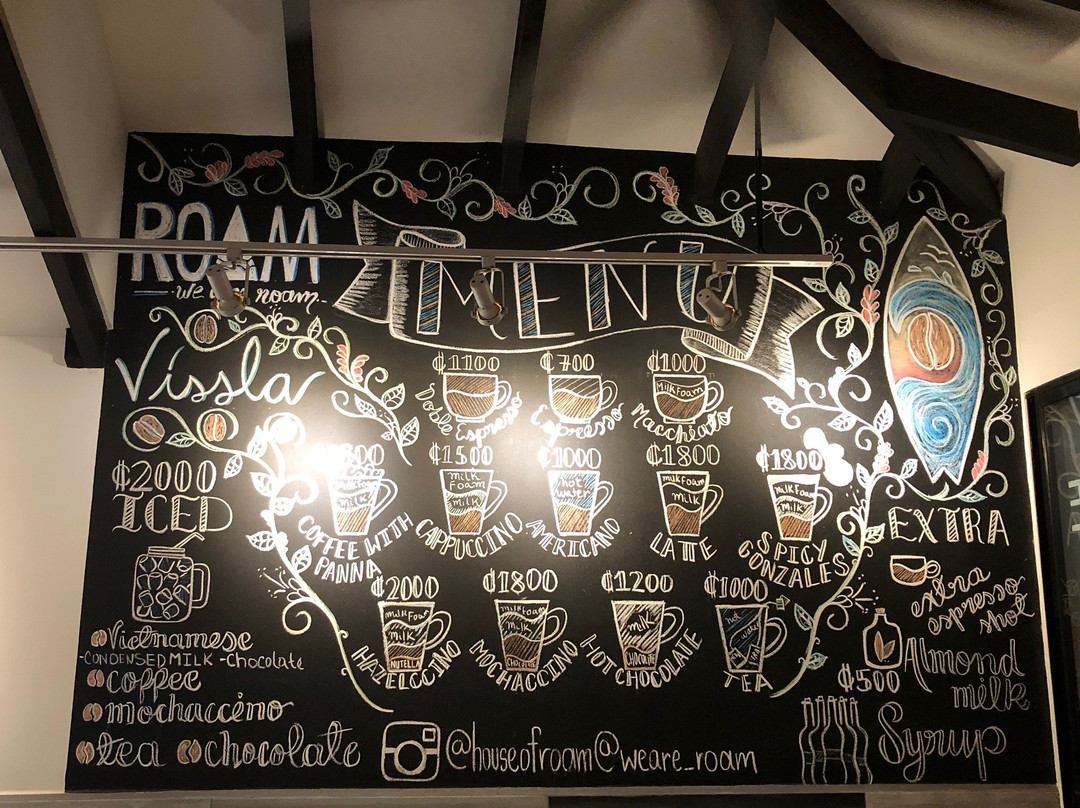 ROAM
we roam
MENU
Vissla
₡2000
ICED
Vietnamese
-CONDENSED MILK -Chocolate
coffee
mochaccino
tea chocolate
₡1100
Doble Espresso
₡700
Espresso
₡1000
Milk Foam
Macchiato
milk Foam
milk
COFFEE WITH PANNA
₡1500
milk Foam
milk
CAPPUCCINO
₡1000
hot water
AMERICANO
₡1800
milk Foam
milk
LATTE
₡1800
Milk Foam
Milk
SPICY GONZALES
₡2000
Milk Foam
Milk
NUTELLA
HAZELCCINO
₡1800
Milk Foam
Milk
CHOCOLATE
MOCHACCINO
₡1200
milk
CHOCOLATE
HOT CHOCOLATE
₡1000
hot water
TEA
EXTRA
extra espresso shot
Almond milk
₡500
Syrup
@houseofroam@weare_roam